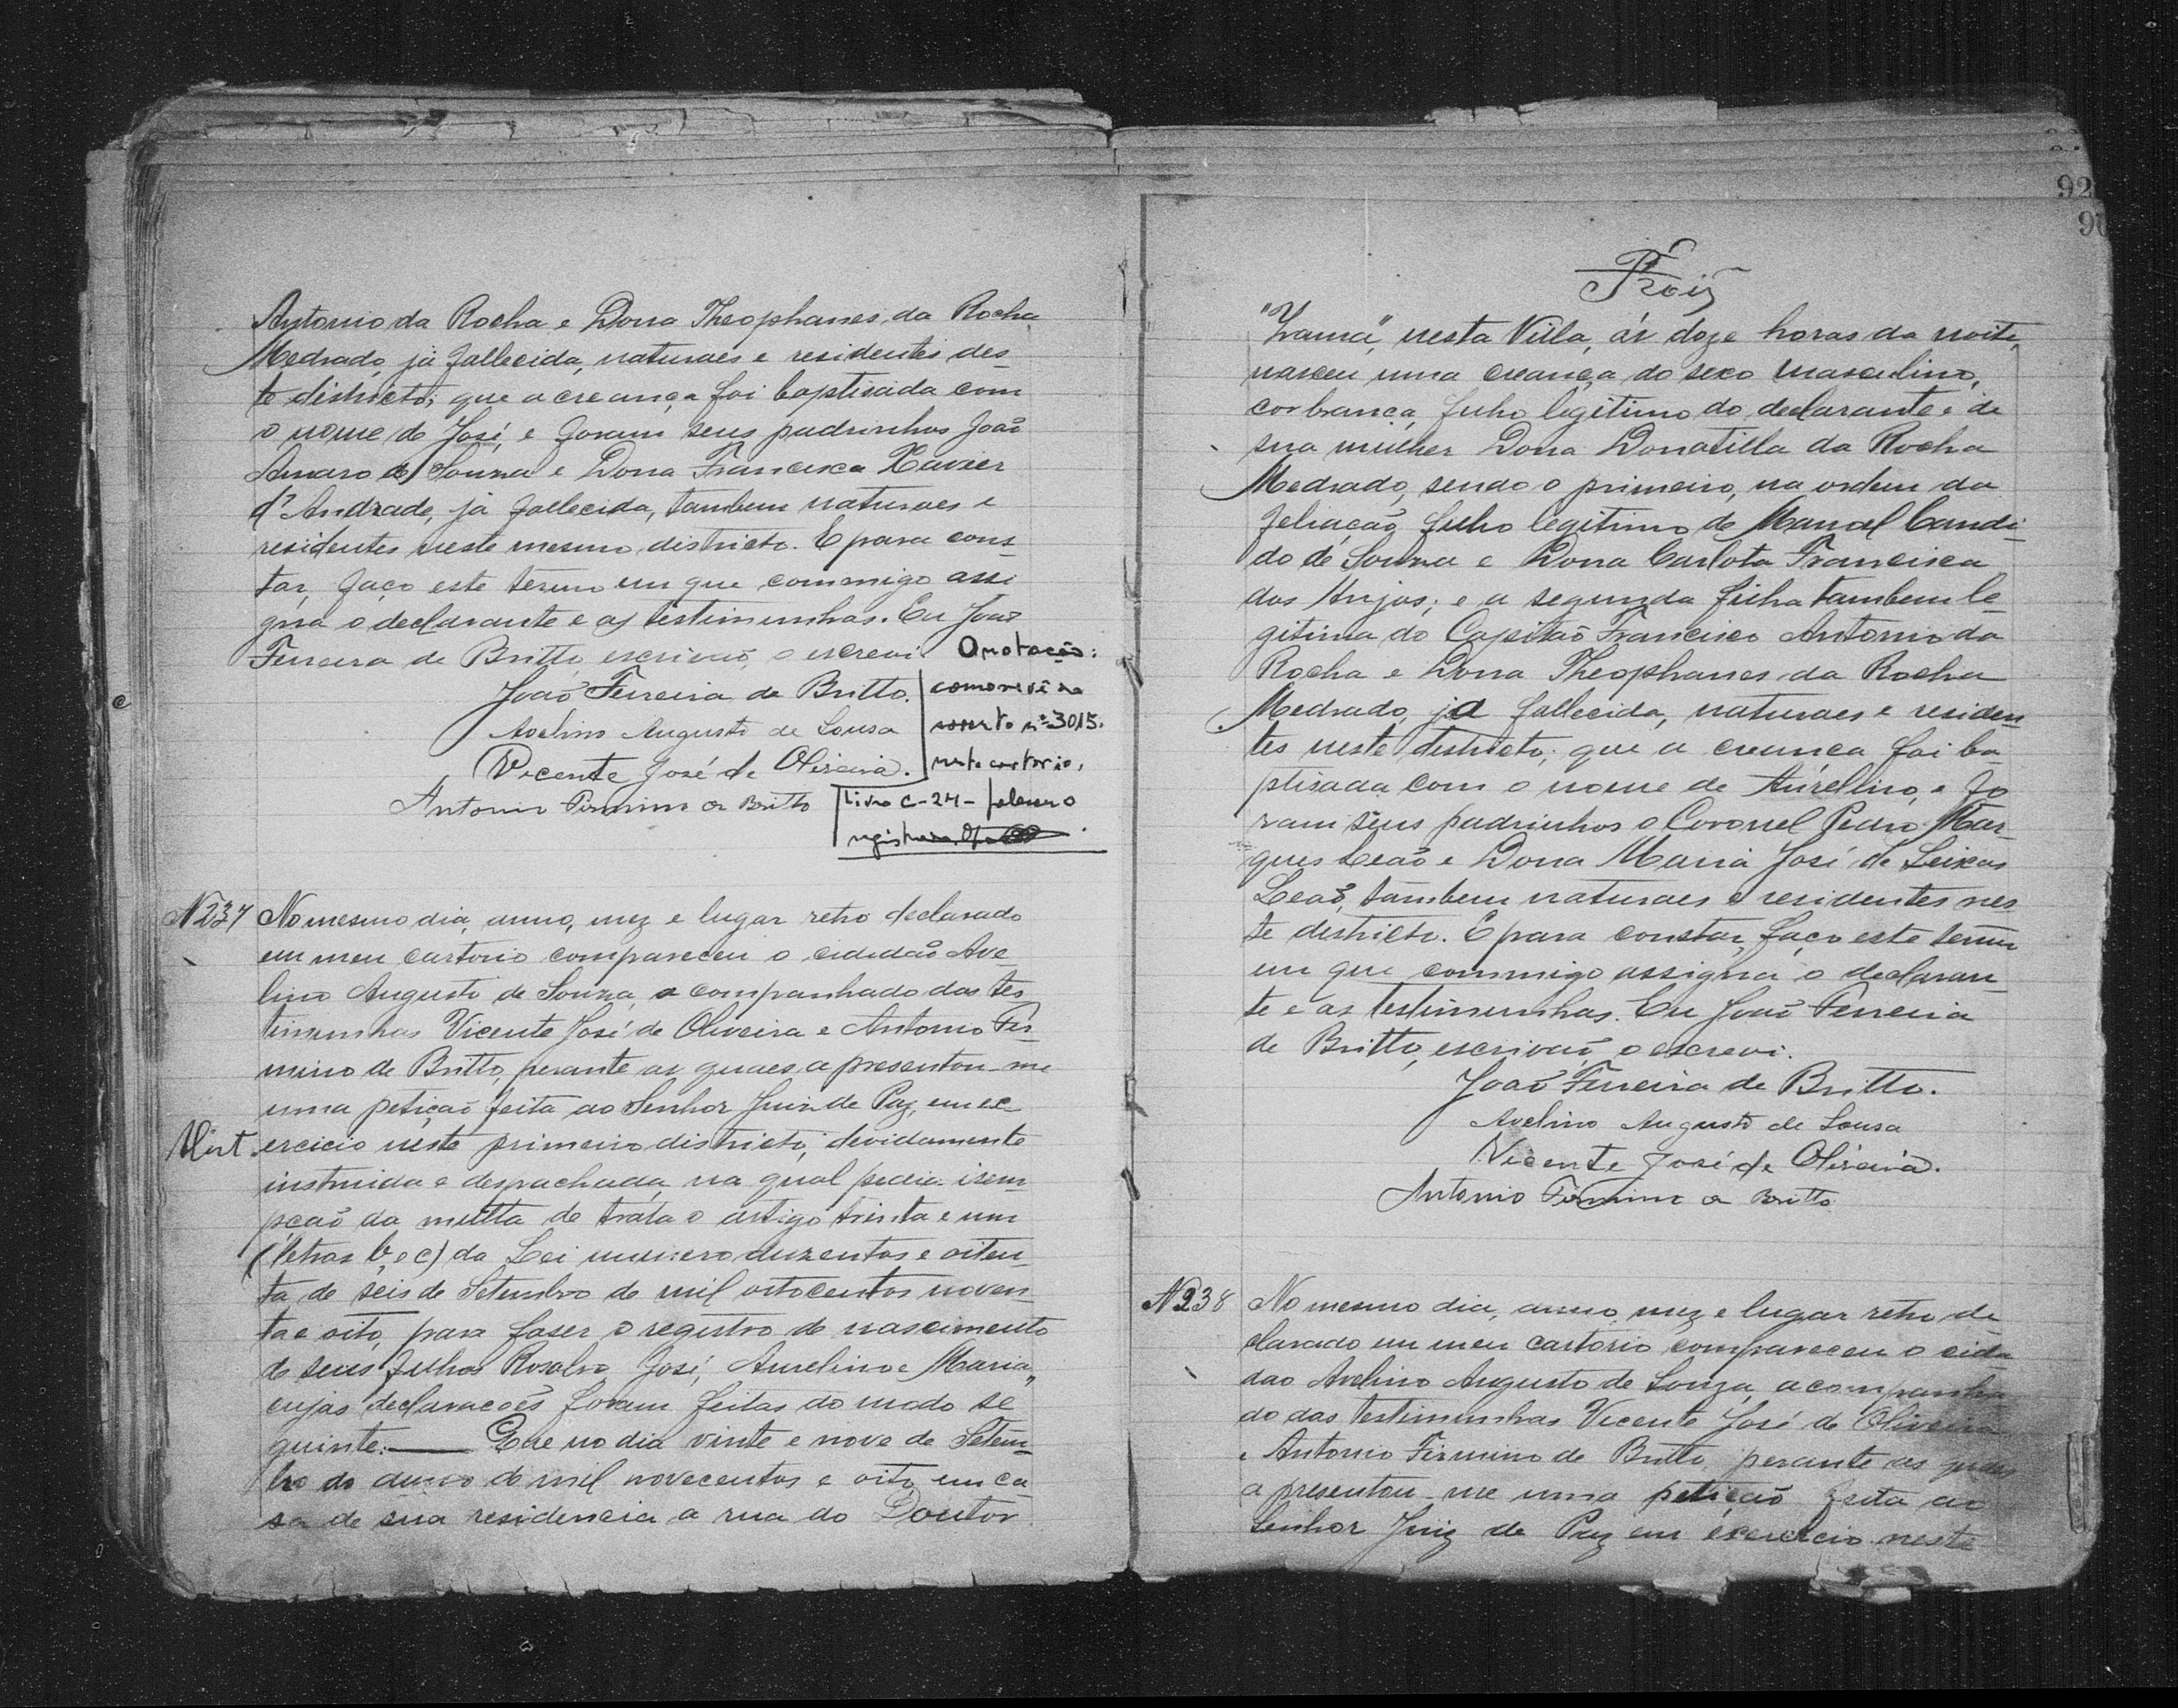 Antonio da Rocha e Dona Theophanes da Rocha
Medrado, já fallecida, naturaes e residentes des-
te districto; que a creança foi baptisada com
o nome de José, e foram seus padrinhos João
Amaro de Souza e Dona Francisca Xavier
d'Andrade, já fallecida, tambem naturaes e
residentes neste mesmo districto. E para cons-
tar, faço este termo em que commigo assi
gna o declarante e as testimunhas. Eu João
Ferreira de Britto, escrivão, o escrevi.
João Ferreira de Britto.
Avelino Augusto de Sousa
Vicente José de Oliveira.
Antonio Firmino de Britto
Anotação:
nº 3015.
neste cartorio,
Livro C-24- faleceu o
N 237 No mesmo dia, anno, mez e lugar retro declarado
em meu cartorio compareceu o cidadão Ave-
lino Augusto de Souza, acompanhado das tes-
timunhas Vicente José de Oliveira e Antonio Fir-
mino de Britto, perante as quaes apresentou-me
uma petição feita ao Senhor Juiz de Paz, em ex-
ercicio neste primeiro districto, devidamente
instruida e despachada, na qual pedia isem-
pção da multa de trata o artigo trinta e um
(letras b, e c) da Lei numero duzentos e oiten-
ta de seis de Setembro de mil oitocentos noven-
ta e oito, para faser o registro de nascimento
de seus filhos Rosalvo, José, Aurelino e Maria,
cujas declarações foram feitas do modo se
guinte: Que no dia vinte e nove de Setem-
bro do anno de mil novecentos e oito, em ca-
sa de sua residencia a rua do Doutor
92
90
"Zama", nesta Villa, ás doze horas da noite,
nasceu uma creança do sexo masculino,
cor branca, filho legitimo do declarante e de
sua mulher Dona Donatilla da Rocha
Medrado, sendo o primeiro, na ordem da
feliação, filho legitimo de Manoel Candi-
do de Souza e Dona Carlota Francisca
dos Anjos; e a segunda filha tambem le-
gitima do Capitão Francisco Antonio da
Rocha e Dona Theophanes da Rocha
Medrado, já fallecida, naturaes e residen-
tes neste districto; que a creança foi ba-
ptisada com o nome de Aurellino, e fo-
ram seus padrinhos o Coronel Pedro Mar-
ques Leão e Dona Maria José de Seixas
Leão, tambem naturaes e residentes nes-
te districto. E para constar, faço este termo
em que commigo assigna o declaran-
te e as testimunhas. Eu João Ferreira
de Britto, escrivão, o escrevi.
João Ferreira de Britto.
Avelino Augusto de Sousa
Vicente José de Oliveira.
Antonio Firmino de Britto
N 238 No mesmo dia, anno, mez e lugar retro de
clarado em meu cartorio compareceu o cida
dao Avelino Augusto de Souza, acompanha
do das testimunhas Vicente José de Oliveira
e Antonio Firmino de Britto, perante as quaes
apresentou-me uma petição feita ao
Senhor Juiz de Paz em exercicio neste